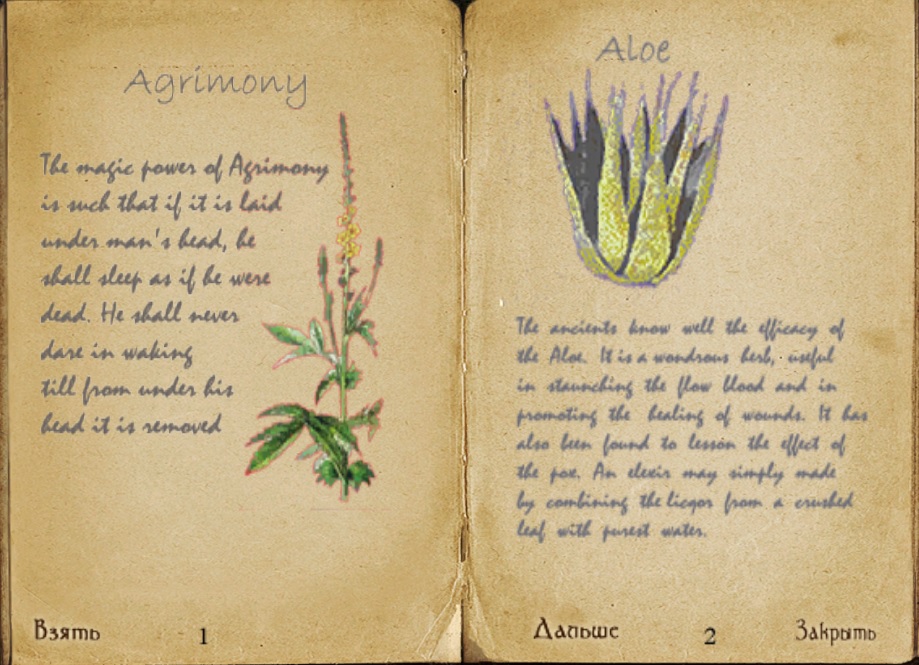 Agrimony
The magic power of Agrimony
is such that if it is laid
under man's head, he
shall sleep as if he were
dead. He shall never
dare in waking
till from under his
head it is removed
Взять
1
Aloe
The ancients know well the efficacy of
the Aloe. It is a wondrous herb, useful
in staunching the flow blood and in
promoting the healing of wounds. It has
also been found to lesson the effect of
the pox. An elexir may simply made
by combining the licqor from a crushed
leaf with purest water.
Дальше
2
Закрыть